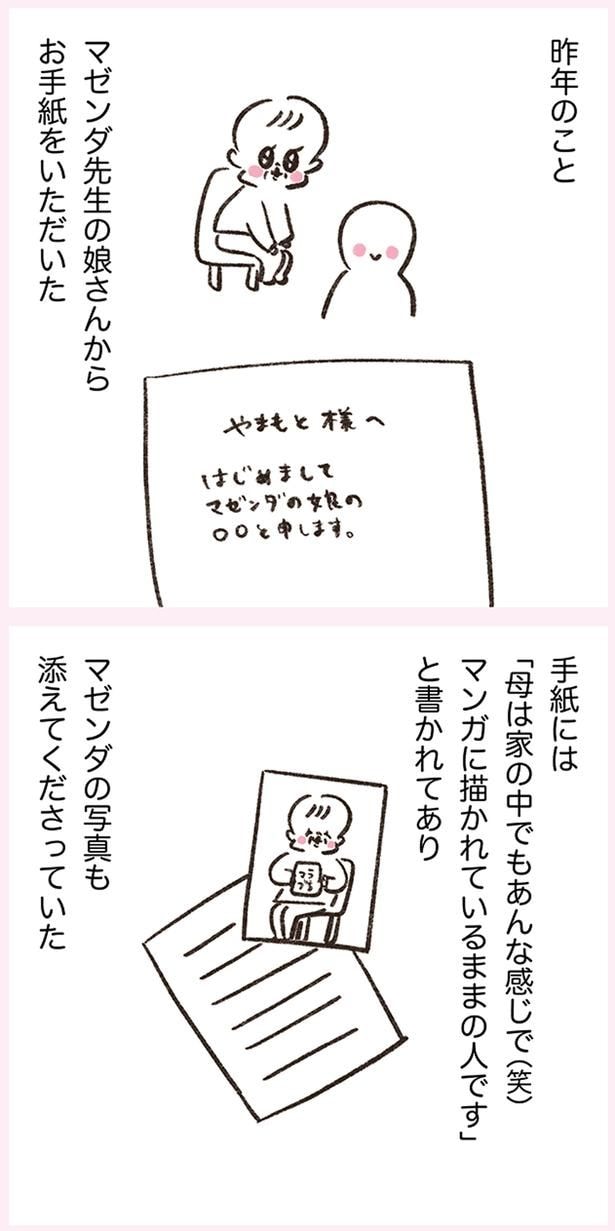 昨年のこと
マゼンダ先生の娘さんから
お手紙をいただいた
やまもと 様へ
はじめまして
マゼンダの娘の
〇〇と申します。
手紙には
「母は家の中でもあんな感じで(笑)
マンガに描かれているままの人です」
と書かれてあり
マゼンダの写真も
添えてくださっていた